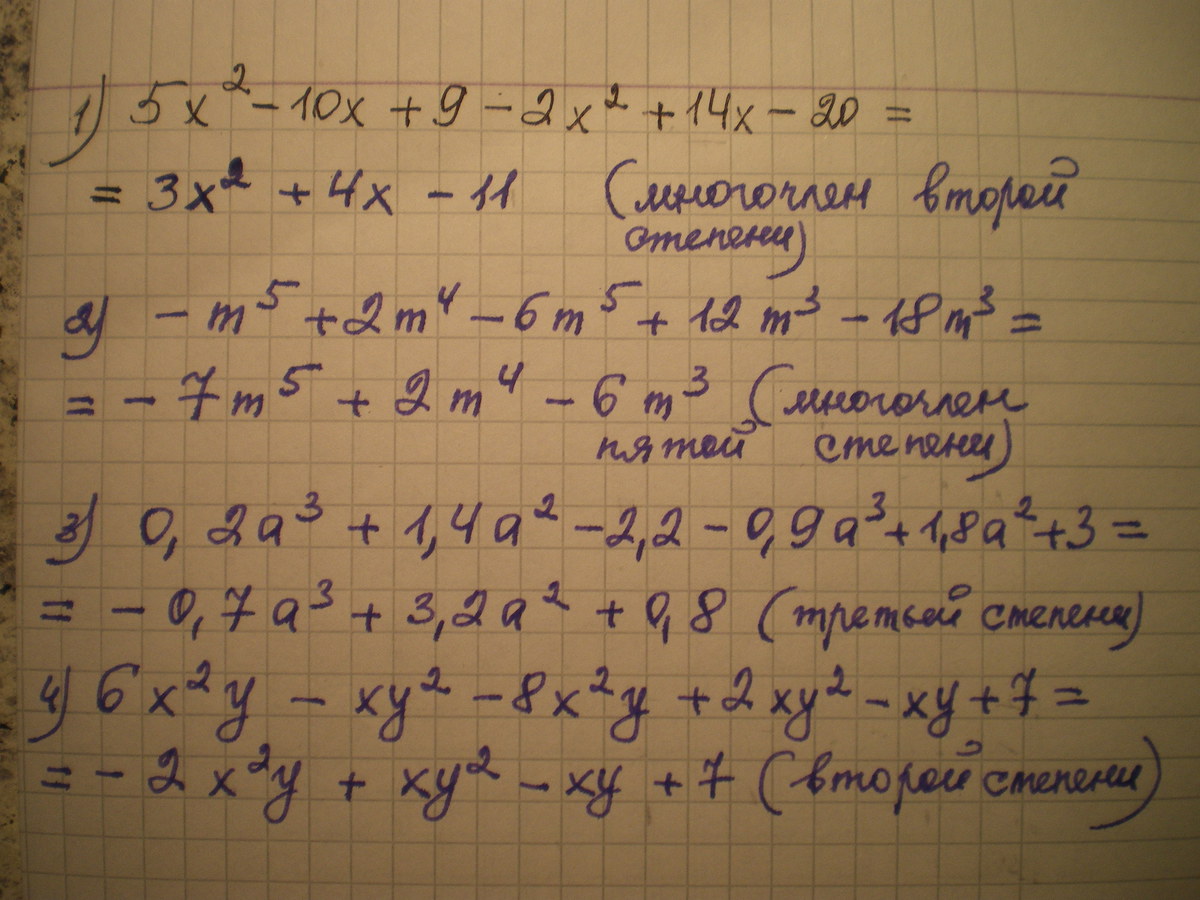 1) 5x² - 10x + 9 - 2x² + 14x - 20 =
= 3x² + 4x - 11 (многочлен второй
степени)
2) - m⁵ + 2m⁴ - 6m⁵ + 12m³ - 18m³ =
= - 7m⁵ + 2m⁴ - 6m³ (многочлен
пятой степени)
3) 0,2a³ + 1,4a² - 2,2 - 0,9a³ + 1,8a² + 3 =
= - 0,7a³ + 3,2a² + 0,8 (третьей степени)
4) 6x²y - xy² - 8x²y + 2xy² - xy + 7 =
= - 2x²y + xy² - xy + 7 (второй степени)